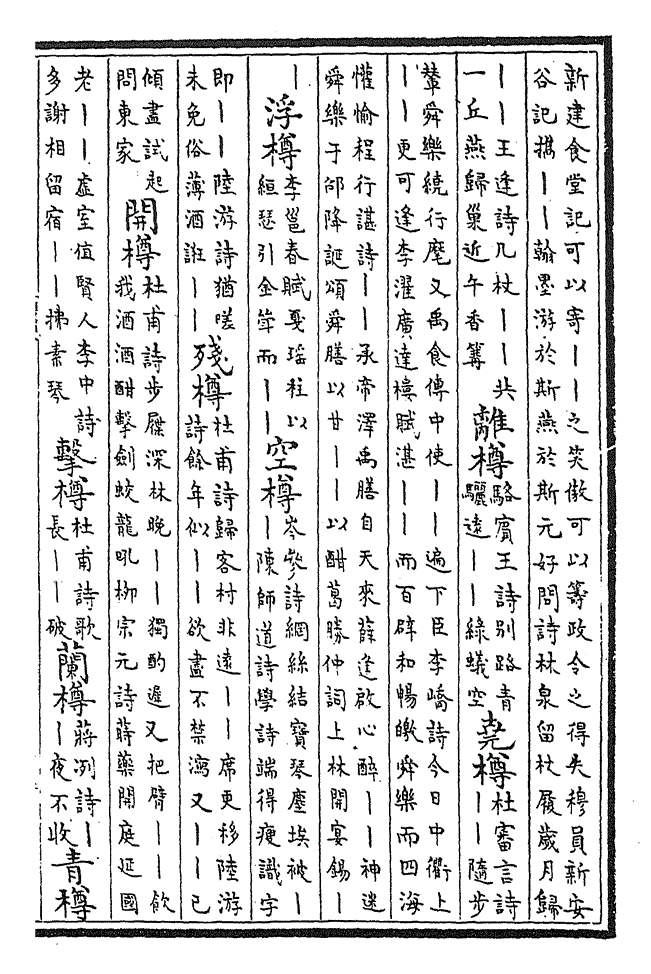 新建食堂記可以寄丨丨之笑傲可以籌政令之得失穆員新安
谷記攜丨丨翰墨游於斯燕於斯元好問詩林泉留杖屨歲月歸
丨丨王逢詩几杖丨丨共
一丘燕歸巢近午香篝
離樽
駱賓王詩別路青
驪遠丨丨綠蟻空
堯樽
杜審言詩
丨丨隨步
輦舜樂繞行麾又禹食傳中使丨丨遍下臣李嶠詩今日中衢上
丨丨更可逢李濯廣達樓賦湛丨丨而百辟和暢皦舜樂而四海
懽愉程行諶詩丨丨承帝澤禹膳自天來薛逢啟心醉丨丨神迷
舜樂于邵降誕頌舜膳以甘丨丨以酣葛勝仲詞上林開宴錫丨
丨
浮樽
李邕春賦戛瑤柱以
絙瑟引金斝而丨丨
空樽
岑參詩網絲結寶琴塵埃被丨
丨陳師道詩學詩端得瘦識字
即丨丨陸游詩猶嗟
未免俗薄酒誑丨丨
殘樽
杜甫詩歸客村非遠丨丨席更移陸游
詩餘年似丨丨欲盡不禁瀉又丨丨已
傾盡試起
問東家
開樽
杜甫詩步屧深林晚丨丨獨酌遲又把臂丨丨飲
我酒酒酣擊劍蛟龍吼柳宗元詩蒔藥開庭延國
老丨丨虛室值賢人李中詩
多謝相留宿丨丨拂素琴
擊樽
杜甫詩歌
長丨丨破
蘭樽
蔣冽詩丨
丨夜不收
青樽